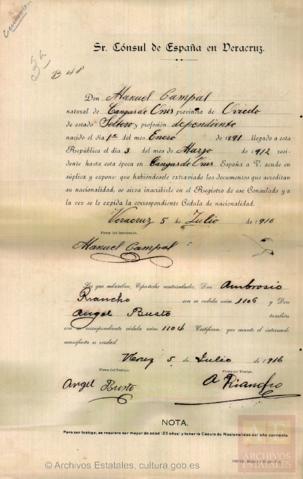 B 40
Sr. Cónsul de España en Veracruz.
Don Manuel Campal
natural de Cangas de Onis provincia de Oviedo
de estado Soltero y profesión dependiente
nacido el día 1º del mes Enero de 1891 llegado a esta
República el día 3 del mes de Marzo de 1912 resi-
dente hasta esta época en Cangas de Onis España a V. acude en
súplica y expone: que habiéndosele extraviado los documentos que acreditan
su nacionalidad, se sirva inscribirle en el Registro de ese Consulado y a
la vez se le expida la correspondiente Cédula de nacionalidad.
Veracruz 5 de Julio de 1916
Firma del Interesado,
Manuel Campal
Los que suscriben, Españoles matriculados, Don Ambrosio
Riancho con su cédula núm. 1106 y Don
Angel Busto también
con su correspondiente cédula núm. 1104 Certifican: que cuanto el interesado
manifiesta es verdad.
Veracz 5 de Julio de 1916
Firma del Testigo, Firma del Testigo,
Angel Busto A Riancho
NOTA.
Para ser testigo, se requiere ser mayor de edad (23 años) y tener la Cédula de Nacionalidad del año corriente.
ARCHIVOS
ESTATALES
© Archivos Estatales, cultura.gob.es